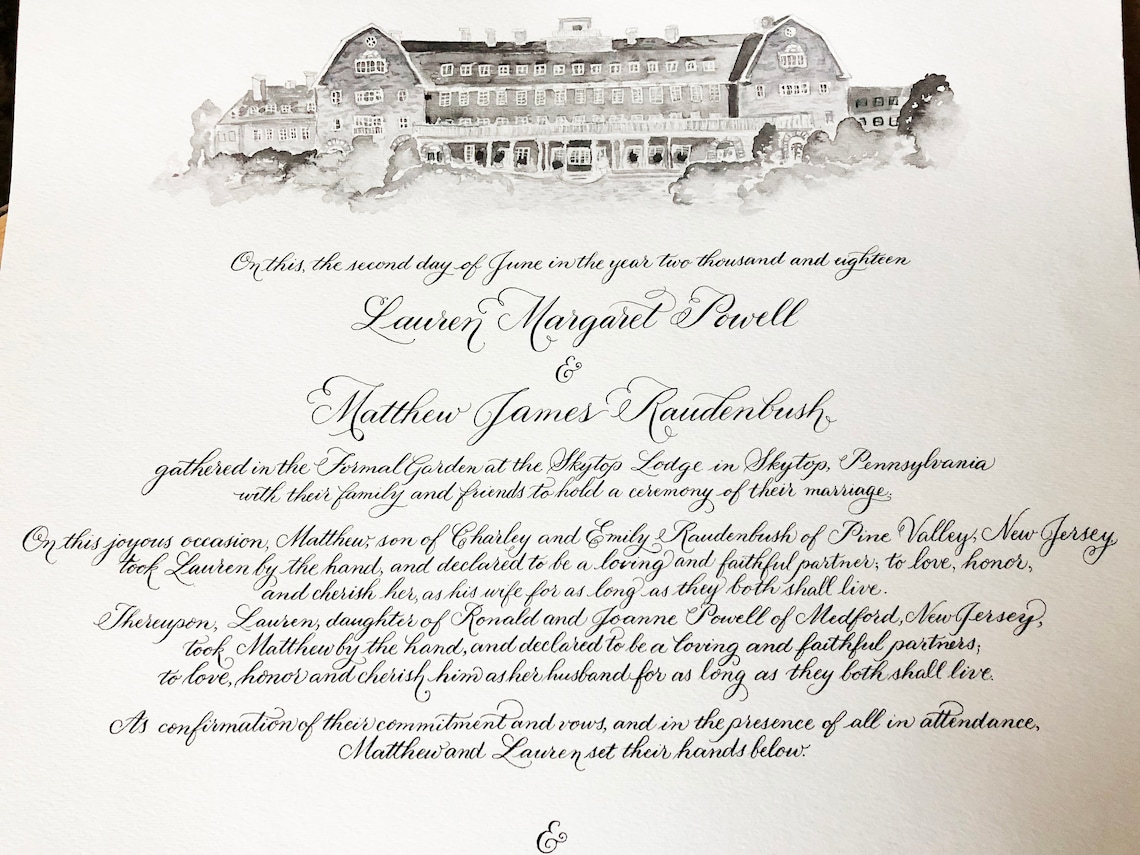 On this, the second day of June in the year two thousand and eighteen
Lauren Margaret Powell
&
Matthew James Raudenbush
gathered in the Formal Garden at the Skytop Lodge in Skytop, Pennsylvania
with their family and friends to hold a ceremony of their marriage.
On this joyous occasion, Matthew, son of Charley and Emily Raudenbush of Pine Valley, New Jersey
took Lauren by the hand, and declared to be a loving and faithful partner; to love, honor,
and cherish her, as his wife for as long as they both shall live.
Thereupon, Lauren, daughter of Ronald and Joanne Powell of Medford, New Jersey,
took Matthew by the hand, and declared to be a loving and faithful partners;
to love, honor and cherish him as her husband for as long as they both shall live.
As confirmation of their commitment and vows, and in the presence of all in attendance,
Matthew and Lauren set their hands below.
&